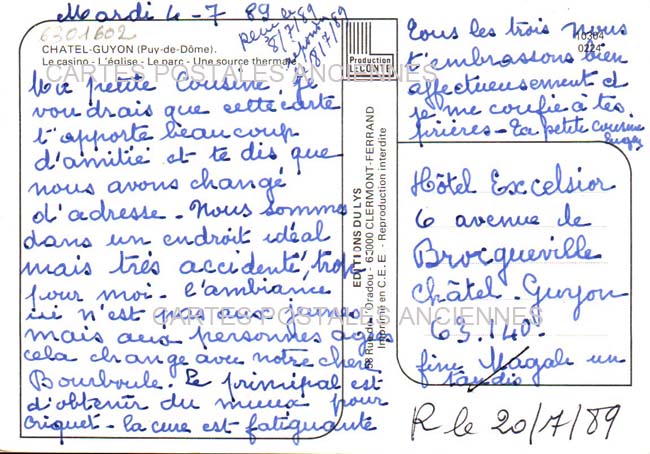 Mardi 4-7 89
6301602
8/7/89
réponse
8/7/89
CHATEL-GUYON (Puy-de-Dôme).
Le casino - L'église - Le parc - Une source thermale
CARTES POSTALES ANCIENNES
Ma petite Cousine, je
voudrais que cette carte
t'apporte beaucoup
d'amitié et te dis que
nous avons changé
d'adresse - Nous sommes
dans un endroit idéal
mais très accidenté, trop
pour moi - l'ambiance
ici n'est pas aux jeunes
mais aux personnes agées
CARTES POSTALES ANCIENNES
cela change avec notre chère
Bourboule. Le principal est
d'obtenir du mieux pour
Criquet - la cure est fatiguante
Production
LECONTE
EDITIONS DU LYS
Oradou - 63000 CLERMONT-FERRAND
Imprimé en C.E.E. - Reproduction interdite
10304
0224
Tous les trois nous
t'embrassons bien
affectueusement et
je me confie à tes
prières - Ta petite cousine
Hôtel Excelsior
6 avenue de
Brocqueville
Châtel-Guyon
63.140.
R le 20/7/89